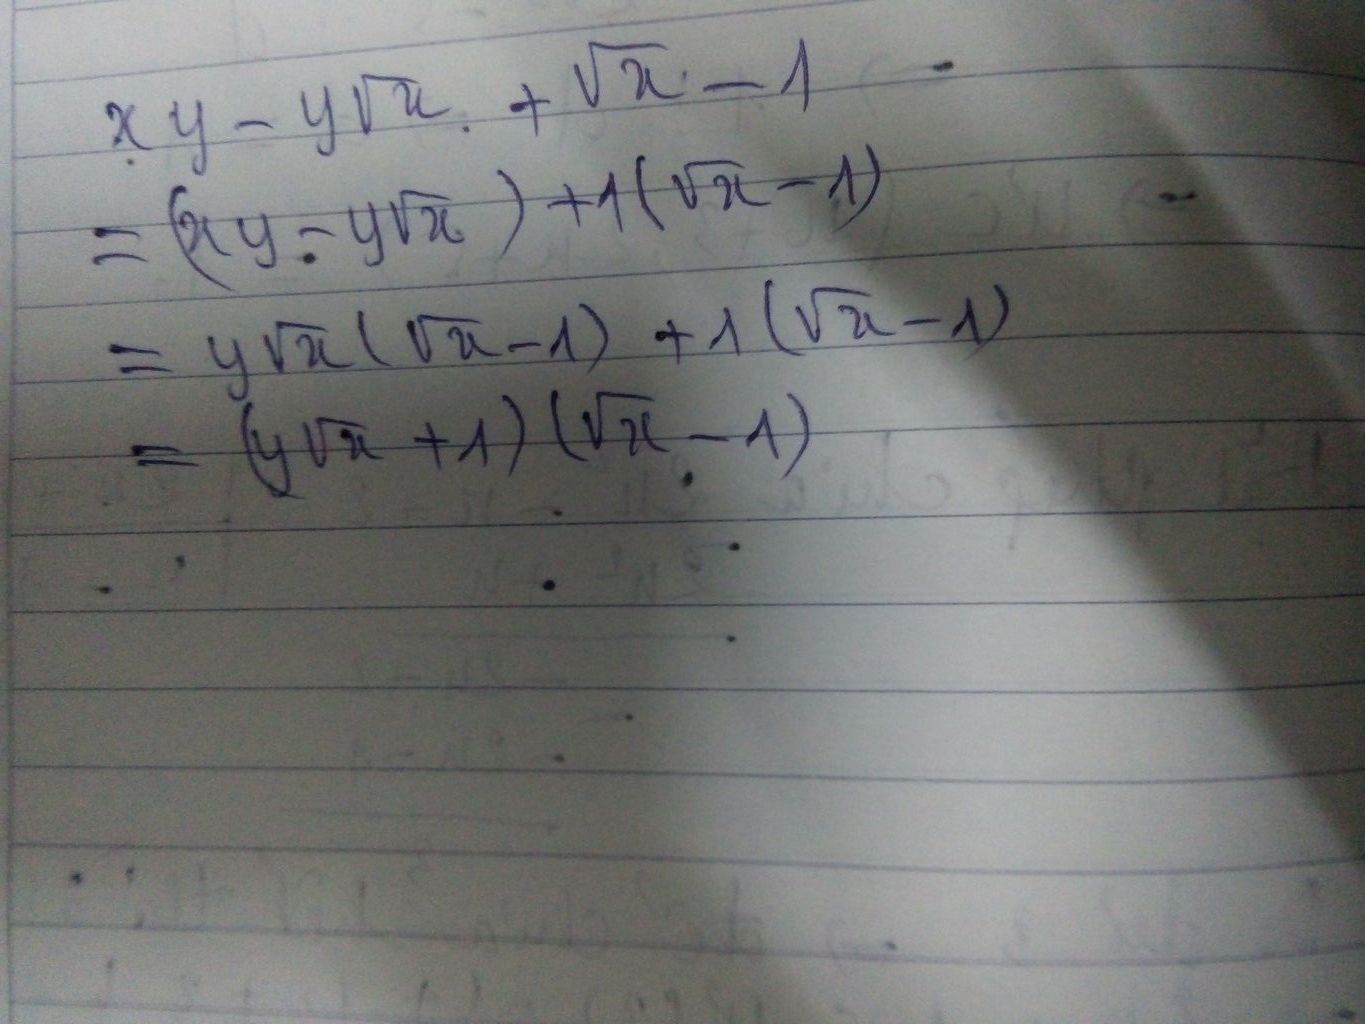 xy - y√x + √x - 1
= (xy - y√x) + 1(√x - 1)
= y√x(√x - 1) + 1(√x - 1)
= (y√x + 1)(√x - 1)